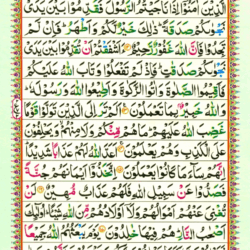 الَّذِيۡنَ اٰمَنُوۡۤا اِذَا نَاجَيۡتُمُ الرَّسُوۡلَ فَقَدِّمُوۡا بَيۡنَ يَدَىۡ
نَجۡوٰٮكُمۡ صَدَقَةً ؕ ذٰ لِكَ خَيۡرٌ لَّكُمۡ وَاَطۡهَرُ ؕ فَاِنۡ لَّمۡ
تَجِدُوۡا فَاِنَّ اللّٰهَ غَفُوۡرٌ رَّحِيۡمٌ ءَاَشۡفَقۡتُمۡ اَنۡ تُقَدِّمُوۡا بَيۡنَ يَدَىۡ
نَجۡوٰٮكُمۡ صَدَقٰتٍ ؕ فَاِذۡ لَمۡ تَفۡعَلُوۡا وَتَابَ اللّٰهُ عَلَيۡكُمۡ
فَاَقِيۡمُوا الصَّلٰوةَ وَاٰتُوا الزَّكٰوةَ وَاَطِيۡعُوا اللّٰهَ وَرَسُوۡلَهٗ ؕ
وَاللّٰهُ خَبِيۡرٌۢ بِمَا تَعۡمَلُوۡنَ اَلَمۡ تَرَ اِلَى الَّذِيۡنَ تَوَلَّوۡا قَوۡمًا
غَضِبَ اللّٰهُ عَلَيۡهِمۡ ؕ مَا هُمۡ مِّنۡكُمۡ وَلَا مِنۡهُمۡۙ وَيَحۡلِفُوۡنَ
عَلَى الۡكَذِبِ وَهُمۡ يَعۡلَمُوۡنَ اَعَدَّ اللّٰهُ لَهُمۡ عَذَابًا شَدِيۡدًا ؕ
اِنَّهُمۡ سَآءَ مَا كَانُوۡا يَعۡمَلُوۡنَ اِتَّخَذُوۡۤا اَيۡمَانَهُمۡ جُنَّةً
فَصَدُّوۡا عَنۡ سَبِيۡلِ اللّٰهِ فَلَهُمۡ عَذَابٌ مُّهِيۡنٌ لَنۡ
تُغۡنِىَ عَنۡهُمۡ اَمۡوَالُهُمۡ وَلَاۤ اَوۡلَادُهُمۡ مِّنَ اللّٰهِ شَيۡـًٔا ؕ اُولٰٓٮِٕكَ
اَصۡحٰبُ النَّارِ ؕ هُمۡ فِيۡهَا خٰلِدُوۡنَ يَوۡمَ يَبۡعَثُهُمُ اللّٰهُ جَمِيۡعًا